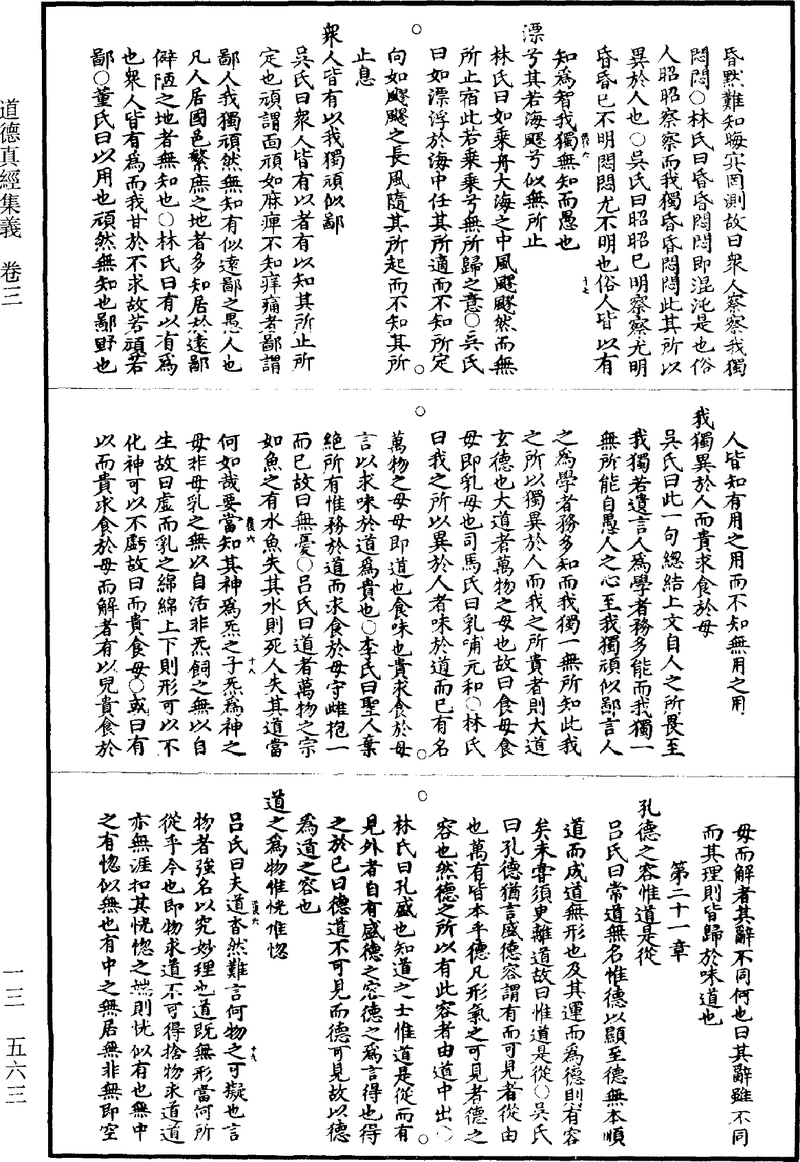 昏默難知晦冥罔測故曰衆人察察我獨
悶悶○林氏曰昏昏悶悶即混沌是也俗
人昭昭察察而我獨昏昏悶悶此其所以
異於人也○吳氏曰昭昭已明察察尤明
昏昏已不明悶悶尤不明也俗人皆以有
知爲智我獨無知而愚也
漂兮其若海飂兮似無所止
林氏曰如乘舟大海之中風飂飂然而無
所止宿此若乘乘兮無所歸之意○吳氏
曰如漂浮於海中任其所適而不知所定
向如飂飂之長風隨其所起而不知其所
止息
衆人皆有以我獨頑似鄙
吳氏曰衆人皆有以者有以知其所止所
定也頑謂面頑如麻痺不知痒痛者鄙謂
鄙人我獨頑然無知有似遠鄙之愚人也
凡人居國邑繁庶之地者多知居於遠鄙
僻陋之地者無知也○林氏曰有以有爲
也衆人皆有爲而我甘於不求故若頑若
鄙○董氏曰以用也頑然無知也鄙野也
人皆知有用之用而不知無用之用
我獨異於人而貴求食於母
吳氏曰此一句總結上文自人之所畏至
我獨若遺言人爲學者務多能而我獨一
無所能自愚人之心至我獨頑似鄙言人
之爲學者務多知而我獨一無所知此我
之所以獨異於人而我之所貴者則大道
玄德也大道者萬物之母也故曰食母食
母即乳母也司馬氏曰乳哺元和○林氏
曰我之所以異於人者味於道而已有名
萬物之母母即道也食味也貴求食於母
言以求味於道爲貴也○李氏曰聖人棄
絕所有惟務於道而求食於母守雌抱一
而已故曰無憂○呂氏曰道者萬物之宗
如魚之有水魚失其水則死人失其道當
何如哉要當知其神爲炁之子炁爲神之
母非母乳之無以自活非炁飼之無以自
生故曰虛而乳之綿綿上下則形可以不
化神可以不虧故曰而貴食母○或曰有
以而貴求食於母而解者有以兒貴食於
母而解者其辭不同何也曰其辭雖不同
而其理則皆歸於味道也
第二十一章
孔德之容惟道是從
呂氏曰常道無名惟德以顯至德無本順
道而成道無形也及其運而爲德則有容
矣未嘗須更離道故曰惟道是從○吳氏
曰孔德猶言盛德容謂有而可見者從由
也萬有皆本乎德凡形氣之可見者德之
容也然德之所以有此容者由道中出○
林氏曰孔盛也知道之士惟道是從而有
見外者自有盛德之容德之爲言得也得
之於已曰德道不可見而德可見故以德
爲道之容也
道之爲物惟恍惟惚
呂氏曰夫道杳然難言何物之可擬也言
物者強名以究妙理也道既無形當何所
從乎今也即物求道不可得捨物求道道
亦無涯扣其恍惚之端則恍似有也無中
之有惚似無也有中之無居無非無即空
道德真經集義 卷三
一三 五六三